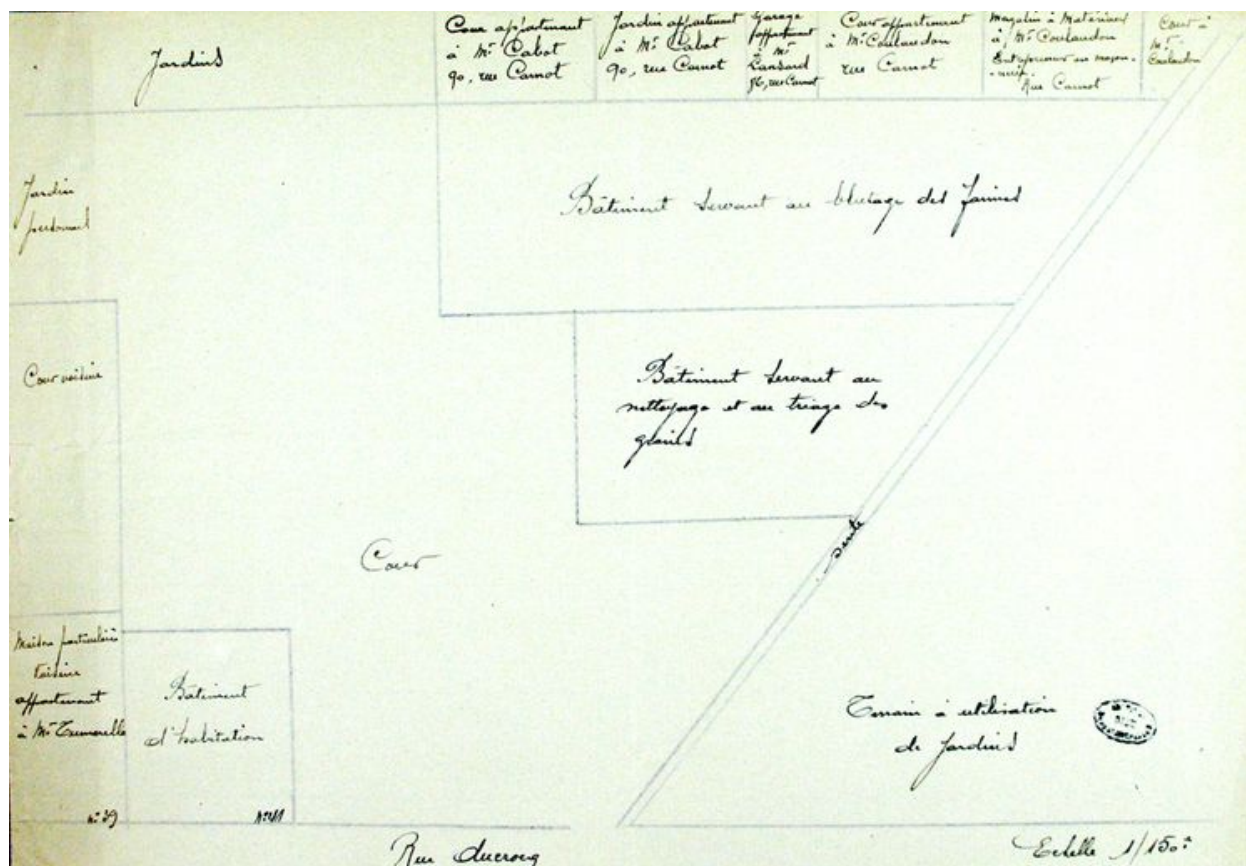 Jardins
Cour appartenant
à Mr Cabot
90, rue Carnot
Jardin appartenant
à Mr Cabot
90, rue Carnot
Garage
appartenant
à Mr
Lansard
rue Carnot
Cour appartenant
à Mr Coulaudon
rue Carnot
Magasin à Matériaux
à Mr Coulaudon
Entrepreneur en maçon-
-nerie
Rue Carnot
Cour à
Mr
Coulaudon
Jardin
Bâtiment servant au blutage des farines
Cour voisine
Bâtiment servant au
nettoyage et au triage des
grains
sente
Cour
Maison particulière
voisine
appartenant
à Mr
Bâtiment
d'habitation
n° 39
N° 41
Terrain à utilisation
de Jardins
Rue Ducrocq
Echelle 1/150e